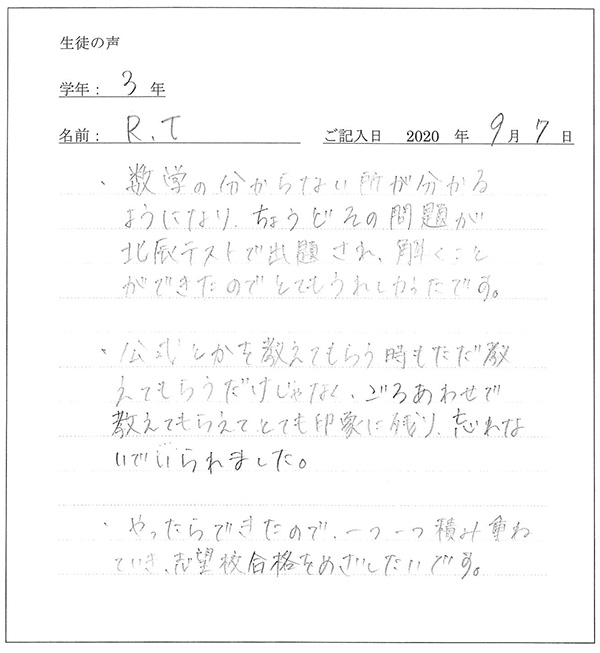 生徒の声
学年： 3 年
名前： R.T ご記入日 2020 年 9月 7 日
・数学の分からない所が分かる
ようになり、ちょうどその問題が
北辰テストで出題され、解くこと
ができたのでとてもうれしかったです。
・公式とかを教えてもらう時もただ教
えてもらうだけじゃなく、ごろあわせで
教えてもらえてとても印象に残り、忘れな
いでいられました。
・やったらできたので、一つ一つ積み重ね
ていき、志望校合格をめざしたいです。